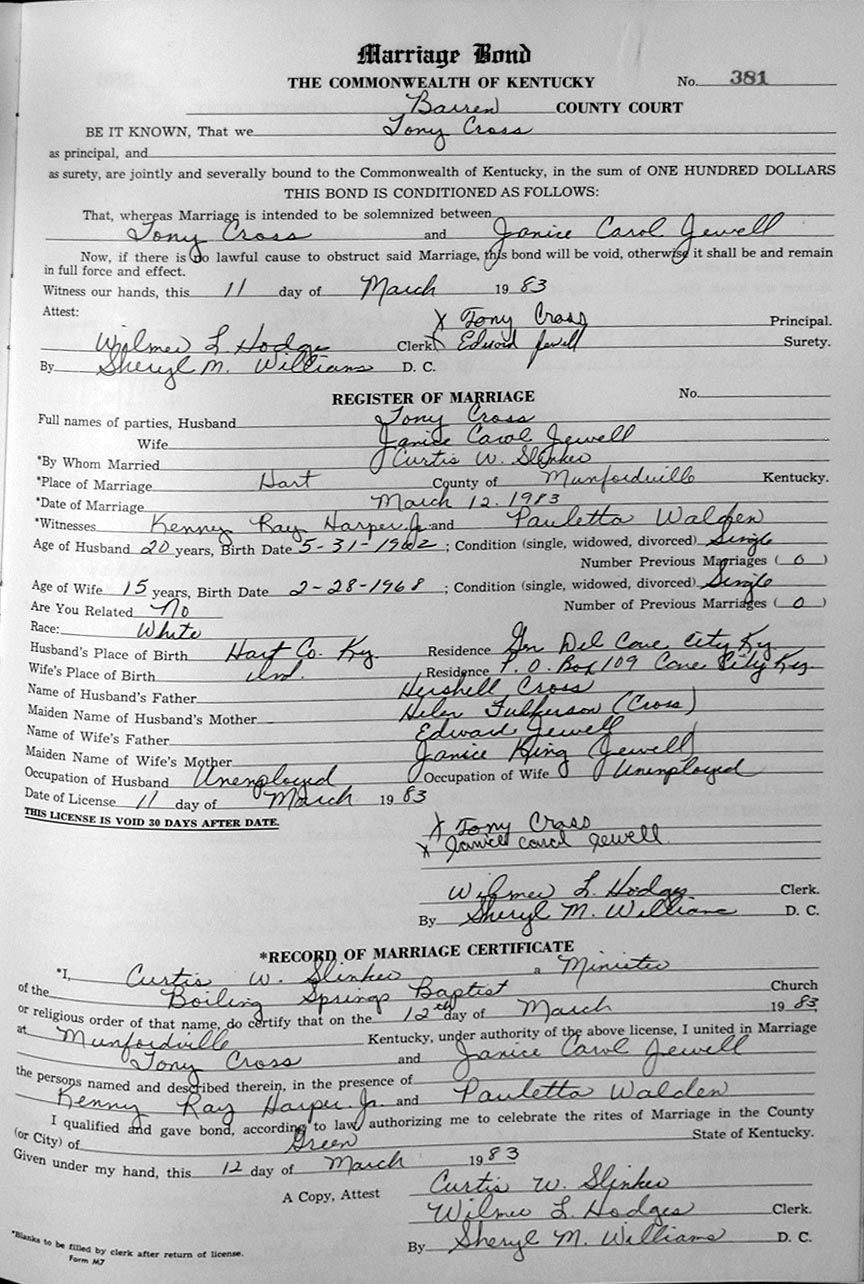 Marriage Bond
THE COMMONWEALTH OF KENTUCKY No. 381
Barren COUNTY COURT
BE IT KNOWN, That we Tony Cross
as principal, and
as surety, are jointly and severally bound to the Commonwealth of Kentucky, in the sum of ONE HUNDRED DOLLARS
THIS BOND IS CONDITIONED AS FOLLOWS:
That, whereas Marriage is intended to be solemnized between
Tony Cross and Janice Carol Jewell
Now, if there is no lawful cause to obstruct said Marriage, this bond will be void, otherwise it shall be and remain
in full force and effect.
Witness our hands, this 11 day of March 1983
Attest: X Tony Cross Principal.
Wilmer L Hodges Clerk X Edward Jewell Surety.
By Sheryl M. Williams D. C.
REGISTER OF MARRIAGE No.
Full names of parties, Husband Tony Cross
Wife Janice Carol Jewell
*By Whom Married Curtis W. Slinker
*Place of Marriage Hart County of Munfordville Kentucky.
*Date of Marriage March 12. 1983
*Witnesses Kenney Ray Harper Jr. and Pauletta Walden
Age of Husband 20 years, Birth Date 5-31-1962; Condition (single, widowed, divorced) Single
Number Previous Marriages ( 0 )
Age of Wife 15 years, Birth Date 2-28-1968; Condition (single, widowed, divorced) Single
Are You Related No Number of Previous Marriages ( 0 )
Race: White
Husband's Place of Birth Hart Co. Ky. Residence Gen Del Cave City Ky.
Wife's Place of Birth Ind. Residence P. O. Box 109 Cave City Ky.
Name of Husband's Father Hershell Cross
Maiden Name of Husband's Mother Helen Fulkerson (Cross)
Name of Wife's Father Edward Jewell
Maiden Name of Wife's Mother Janice King (Jewell)
Occupation of Husband Unemployed Occupation of Wife Unemployed
Date of License 11 day of March 1983
THIS LICENSE IS VOID 30 DAYS AFTER DATE.
X Tony Cross
X Janice Carol Jewell
Wilmer L. Hodges Clerk.
By Sheryl M. Williams D. C.
*RECORD OF MARRIAGE CERTIFICATE
*I, Curtis W. Slinker a Minister
of the Boiling Springs Baptist Church
or religious order of that name, do certify that on the 12th day of March 1983,
at Munfordville Kentucky, under authority of the above license, I united in Marriage
Tony Cross and Janice Carol Jewell
the persons named and described therein, in the presence of
Kenny Ray Harper Jr. and Pauletta Walden
I qualified and gave bond, according to law, authorizing me to celebrate the rites of Marriage in the County
(or City) of Green State of Kentucky.
Given under my hand, this 12 day of March 1983
Curtis W. Slinker
A Copy, Attest Wilmer L. Hodges Clerk.
By Sheryl M. Williams D. C.
*Blanks to be filled by clerk after return of license.
Form M7